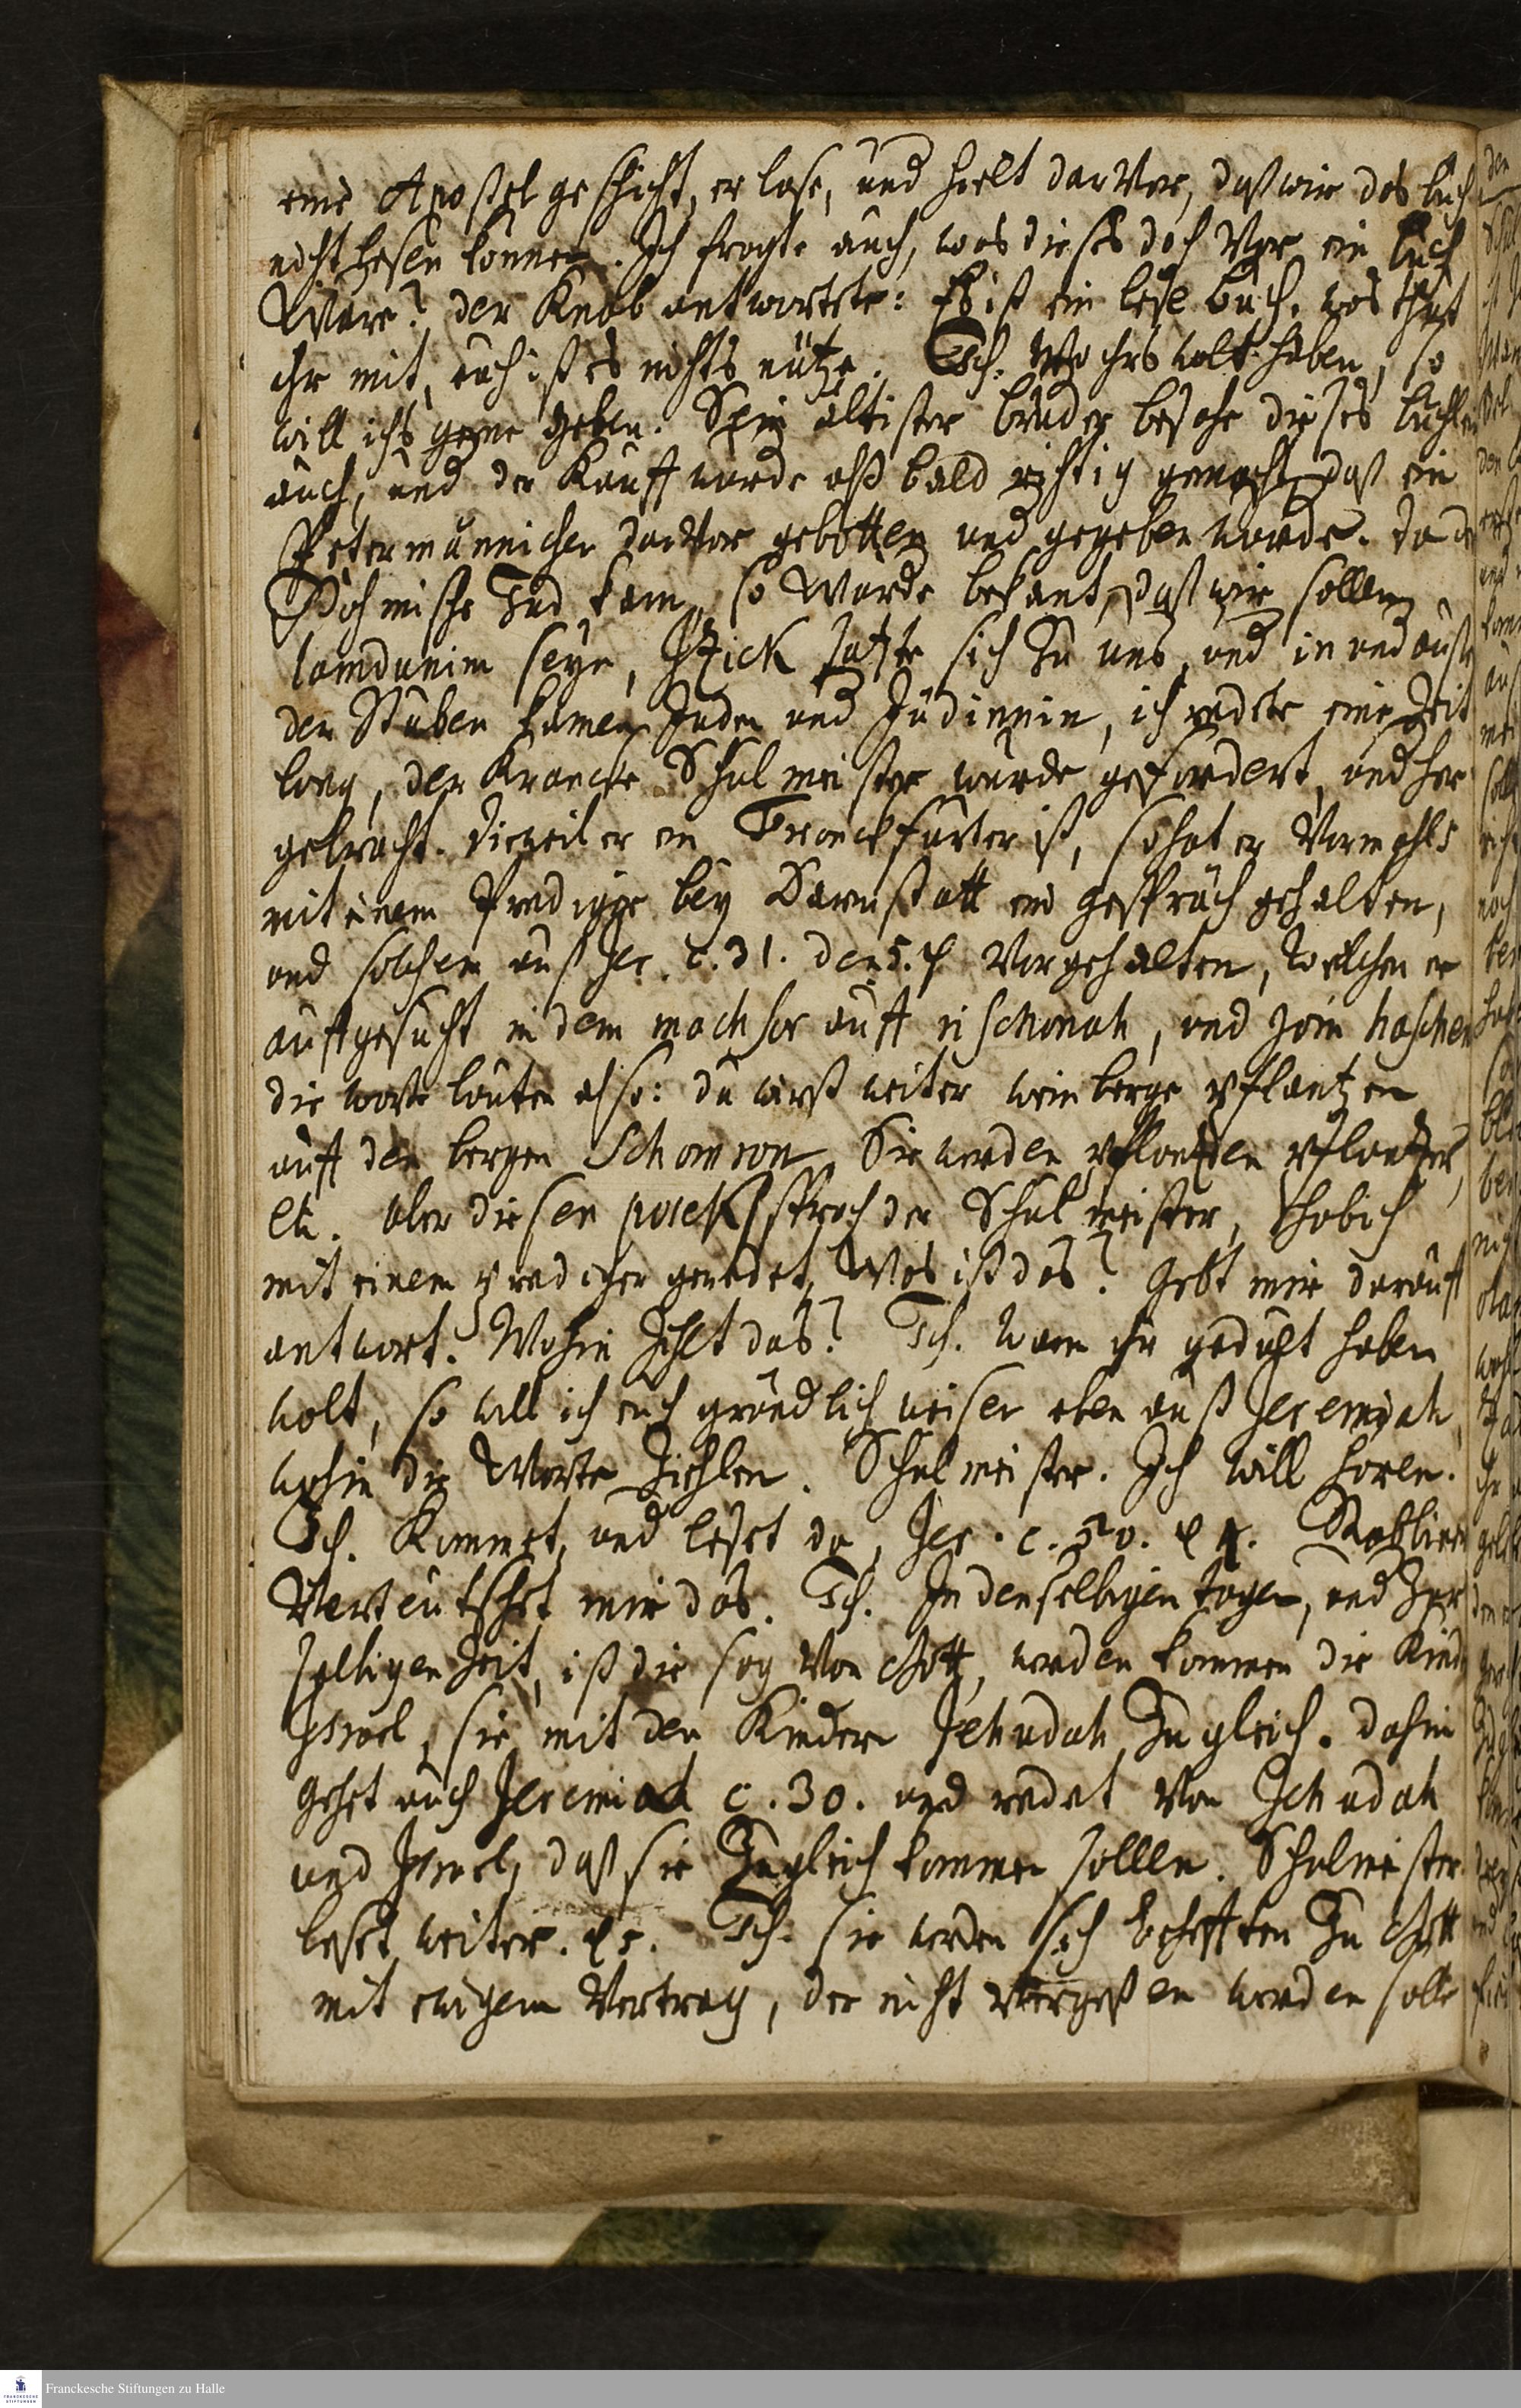 eine Apostelgeschicht, er lase, und hielt darvor, daß wir das buch
nicht lesen können. Ich fragte auch, was dieses doch vor ein buch
Wäre? der Knab antwortete: Es ist ein lese buch, was thut
ihr mit, euch ist es nichts nütze. Ich. Wo ihrs wolt haben, so
will ichs gerne geben. Sein ältister bruder besahe dieses büchlein
auch, und der Kauff wurde alß bald richtig gemacht, daß ein
Petermännichen darvor gebotten und gegeben wurde. Da der
Böhmische Jud kam, so wurde bekant, daß wir sollen
lamdanim seyn, Itzick satzte sich zu uns, und in und auser
der Stuben kamen Juden und Jüdinnin, ich redete eine Zeit
lang, der Krancke Schulmeister wurde gefordert, und her
gebracht. dieweil er ein Franckfurter ist, so hat er Vormahls
mit einem Prediger bey Darmstatt ein gespräch gehalten,
und solchem auß Jer. c. 31. den 5. v. Vorgehalten, welchen er
auffgesucht in dem machsor auff rischonah, und jom haschen
die worte lauten also: du wirst weiter weinberge pflantzen
auff den bergen Schomron. Sie werden pflantzen pflantzer,
etc. über diesen posek sprach der Schulmeister, hab ich
mit einem prediger geredet, Was ist das? Gebt mir darauff
antwort. Wohin zihlt das? Ich. wann ihr gedult haben
wolt, so will ich euch gründlich weisen eben auß Jeremiah,
wohin die Worte ziehlen. Schulmeister. Ich will hören.
Ich. Kommet, und leset da, Jer. c. 50. v 4. Rabbiner
Verteutschet mir das. Ich. In denselbigen tagen, und zur
selbigen Zeit, ist die sag von Gott, werden kommen die Kinder
Israel, sie mit den Kindern Jehudah zugleich. dahin
gehet auch Jeremiah c. 30. und redet von Jehudah
und Israel, daß sie zugleich kommen sollen. Schulmeister
leset weiter. v 5. Ich. sie werden sich behefften zu Gott
mit ewigem Vertrag, der nicht vergeßen werden solle
Franckesche Stiftungen zu Halle